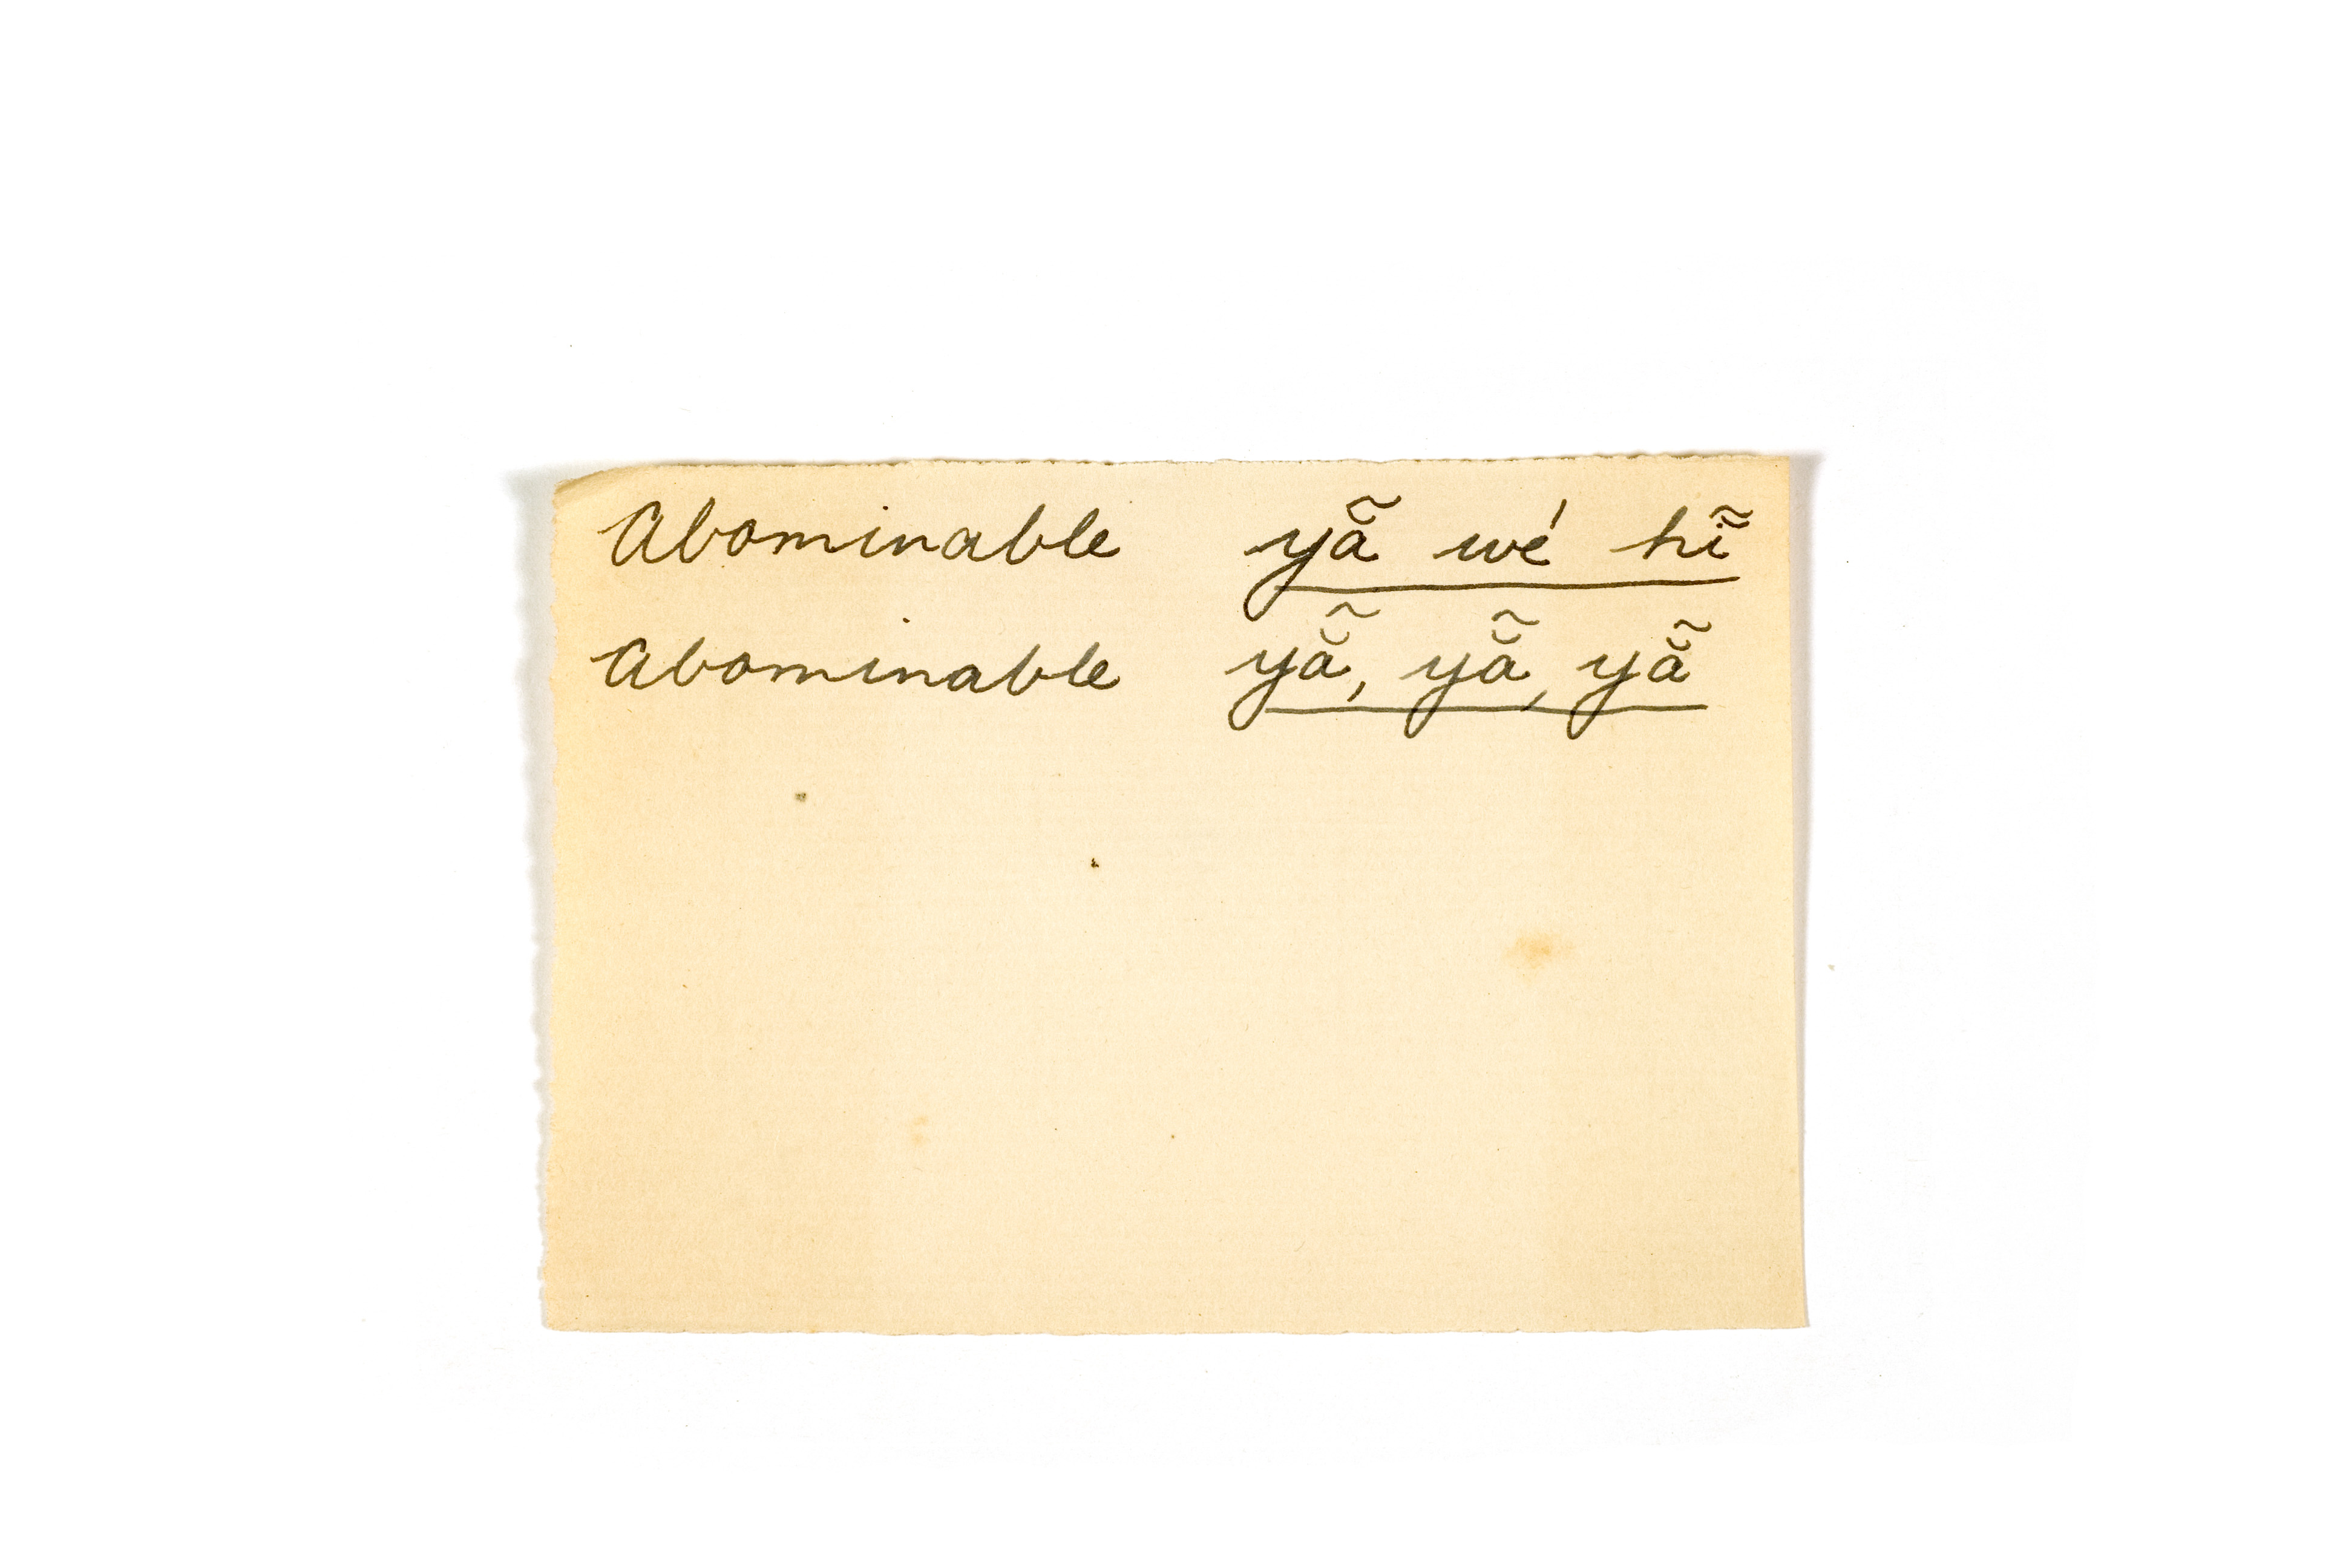 Abominable yã̆ wé hĩ
Abominable yã̆, yã̆, yã̆